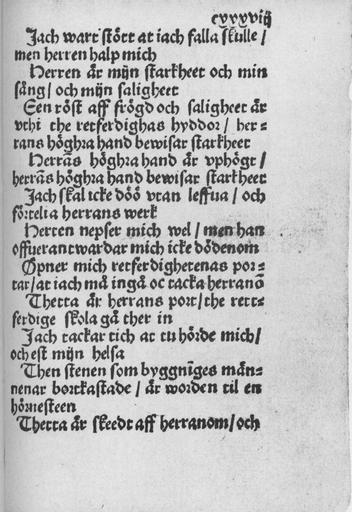 cxxxviij
Jach wart stött at iach falla skulle /
men herren halp mich
Herren är mijn starkheet och min
sång / och mijn saligheet
Een röst aff frögd och saligheet är
vthi the retferdighas hyddor / her-
rans höghra hand bewisar starkheet
Herrãs höghra hand är vphögt /
herrãs höghra hand bewisar starkheet
Jach skal icke döö vtan leffua / och
förtelia herrans werk
Herren nepser mich wel / men han
offuerantwardar mich icke dödenom
Öpner mich retferdighetenas por-
tar / at iach må ingå oc tacka herranõ
Thetta är herrans port / the rett-
ferdige skola gå ther in
Jach tackar tich at tu hörde mich /
och est mijn helsa
Then stenen som byggnĩges män-
nenar bortkastade / är worden til en
hörnesteen
Thetta är skeedt aff herranom / och